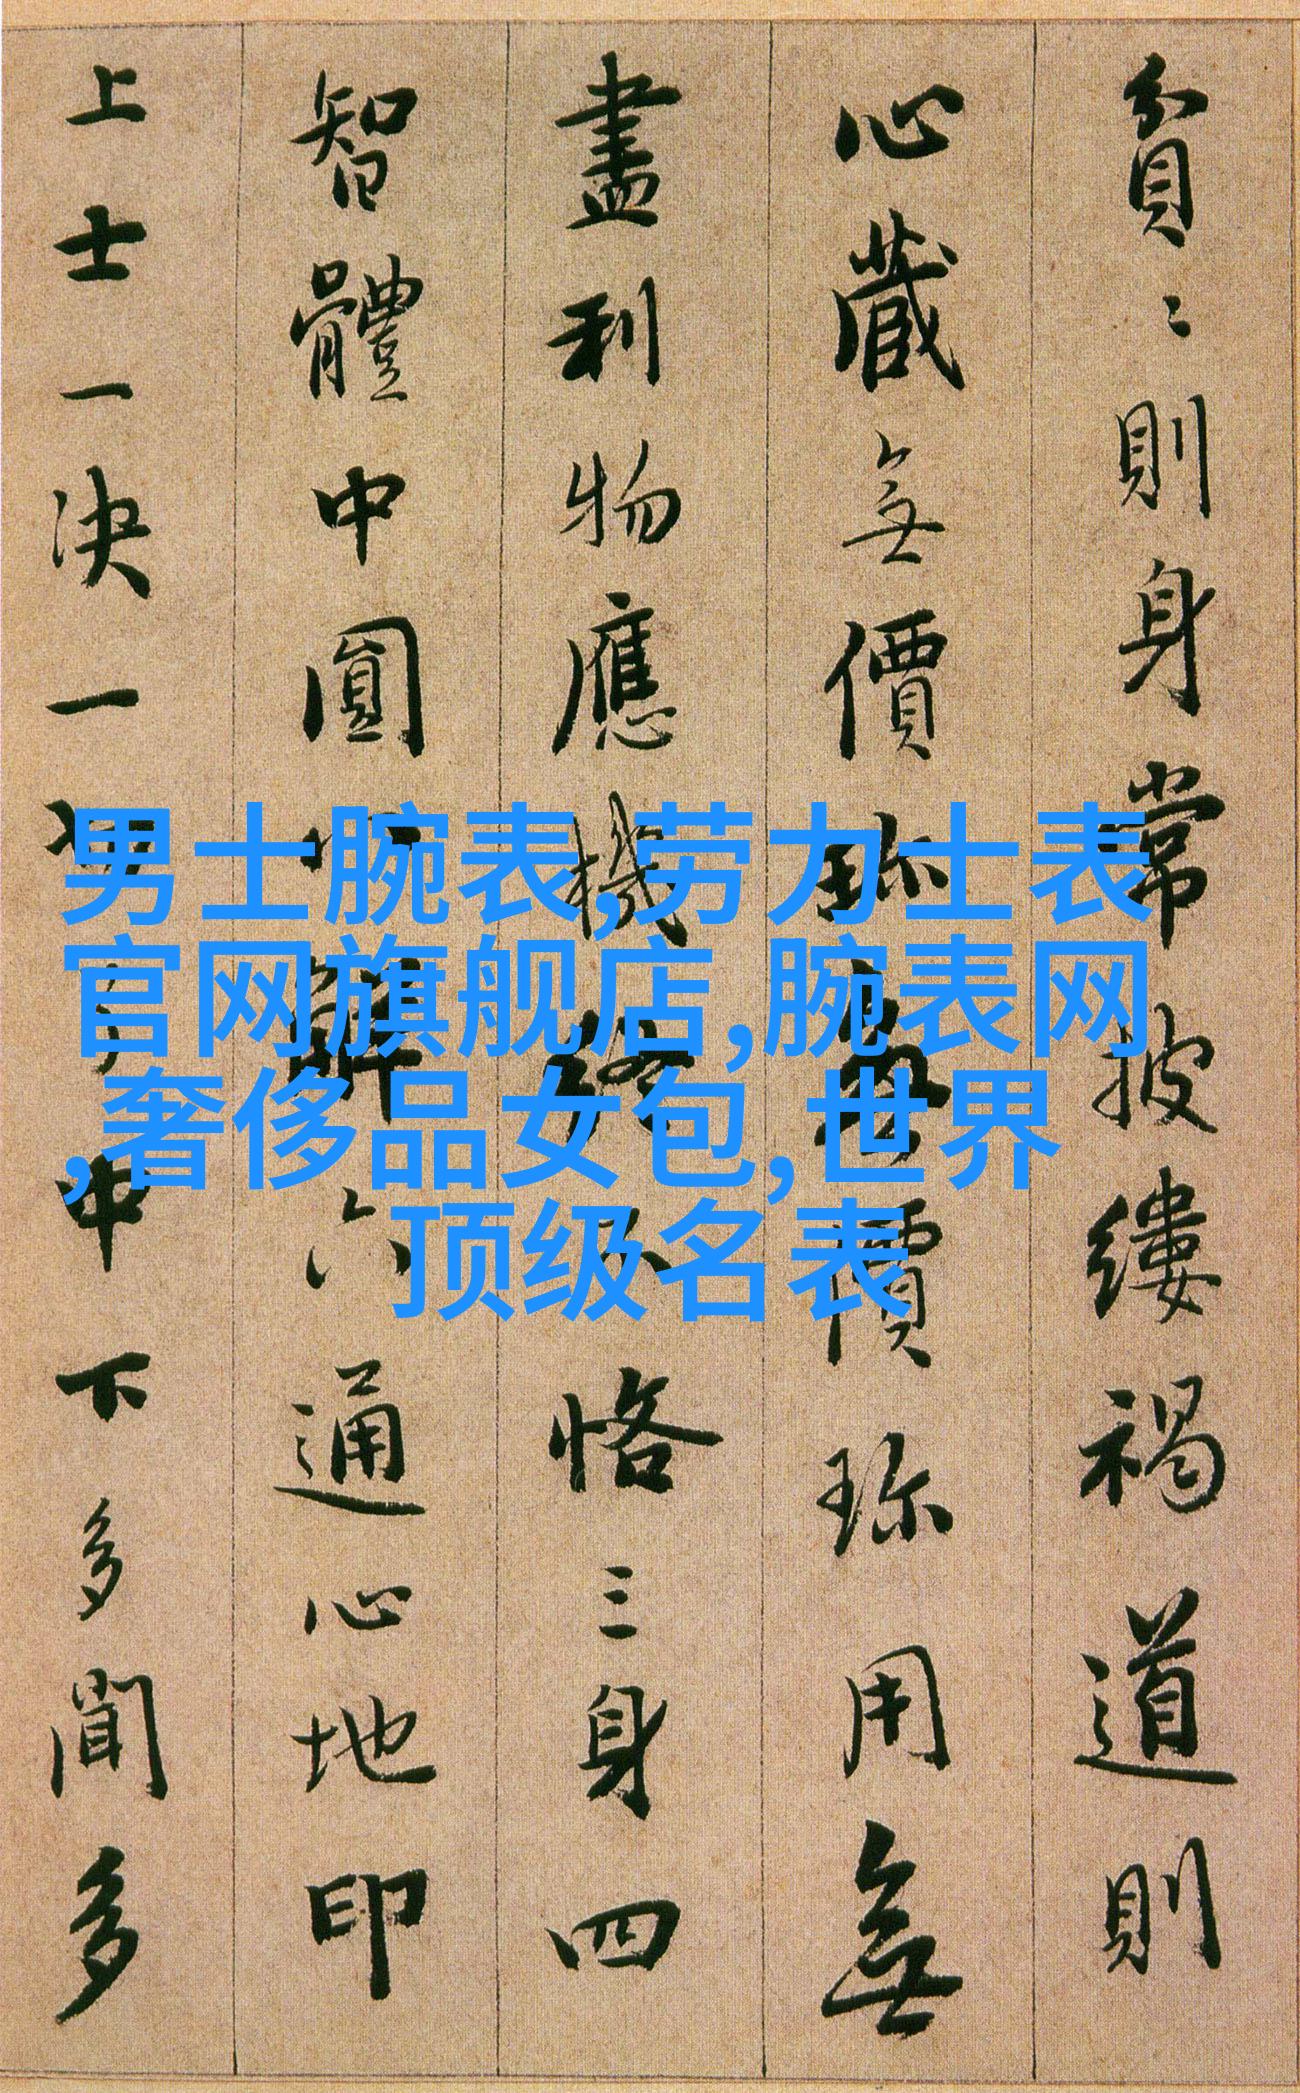 貧〻則身常披縷褐道則
心藏無價珎無價珎用無
盡利物應機終不恪三身四
智體中圓八解六通心地印
上士一決一切了中下多聞多
男士腕表,劳力士表
官网旗舰店,腕表网
,奢侈品女包,世界
顶级名表